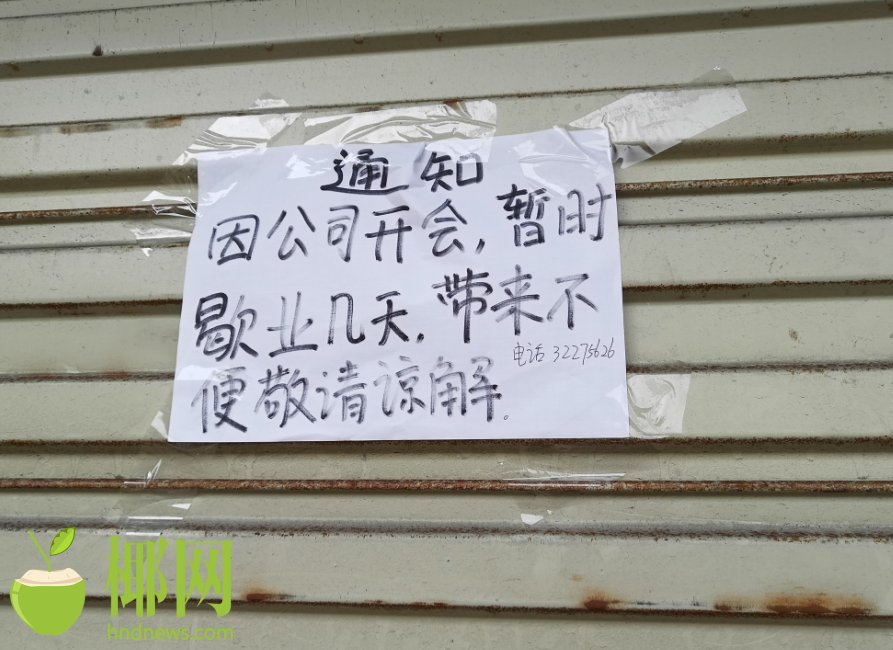 通知
因公司开会,暂时
歇业几天,带来不
便敬请谅解。
电话 32275626
椰网
hndnews.com